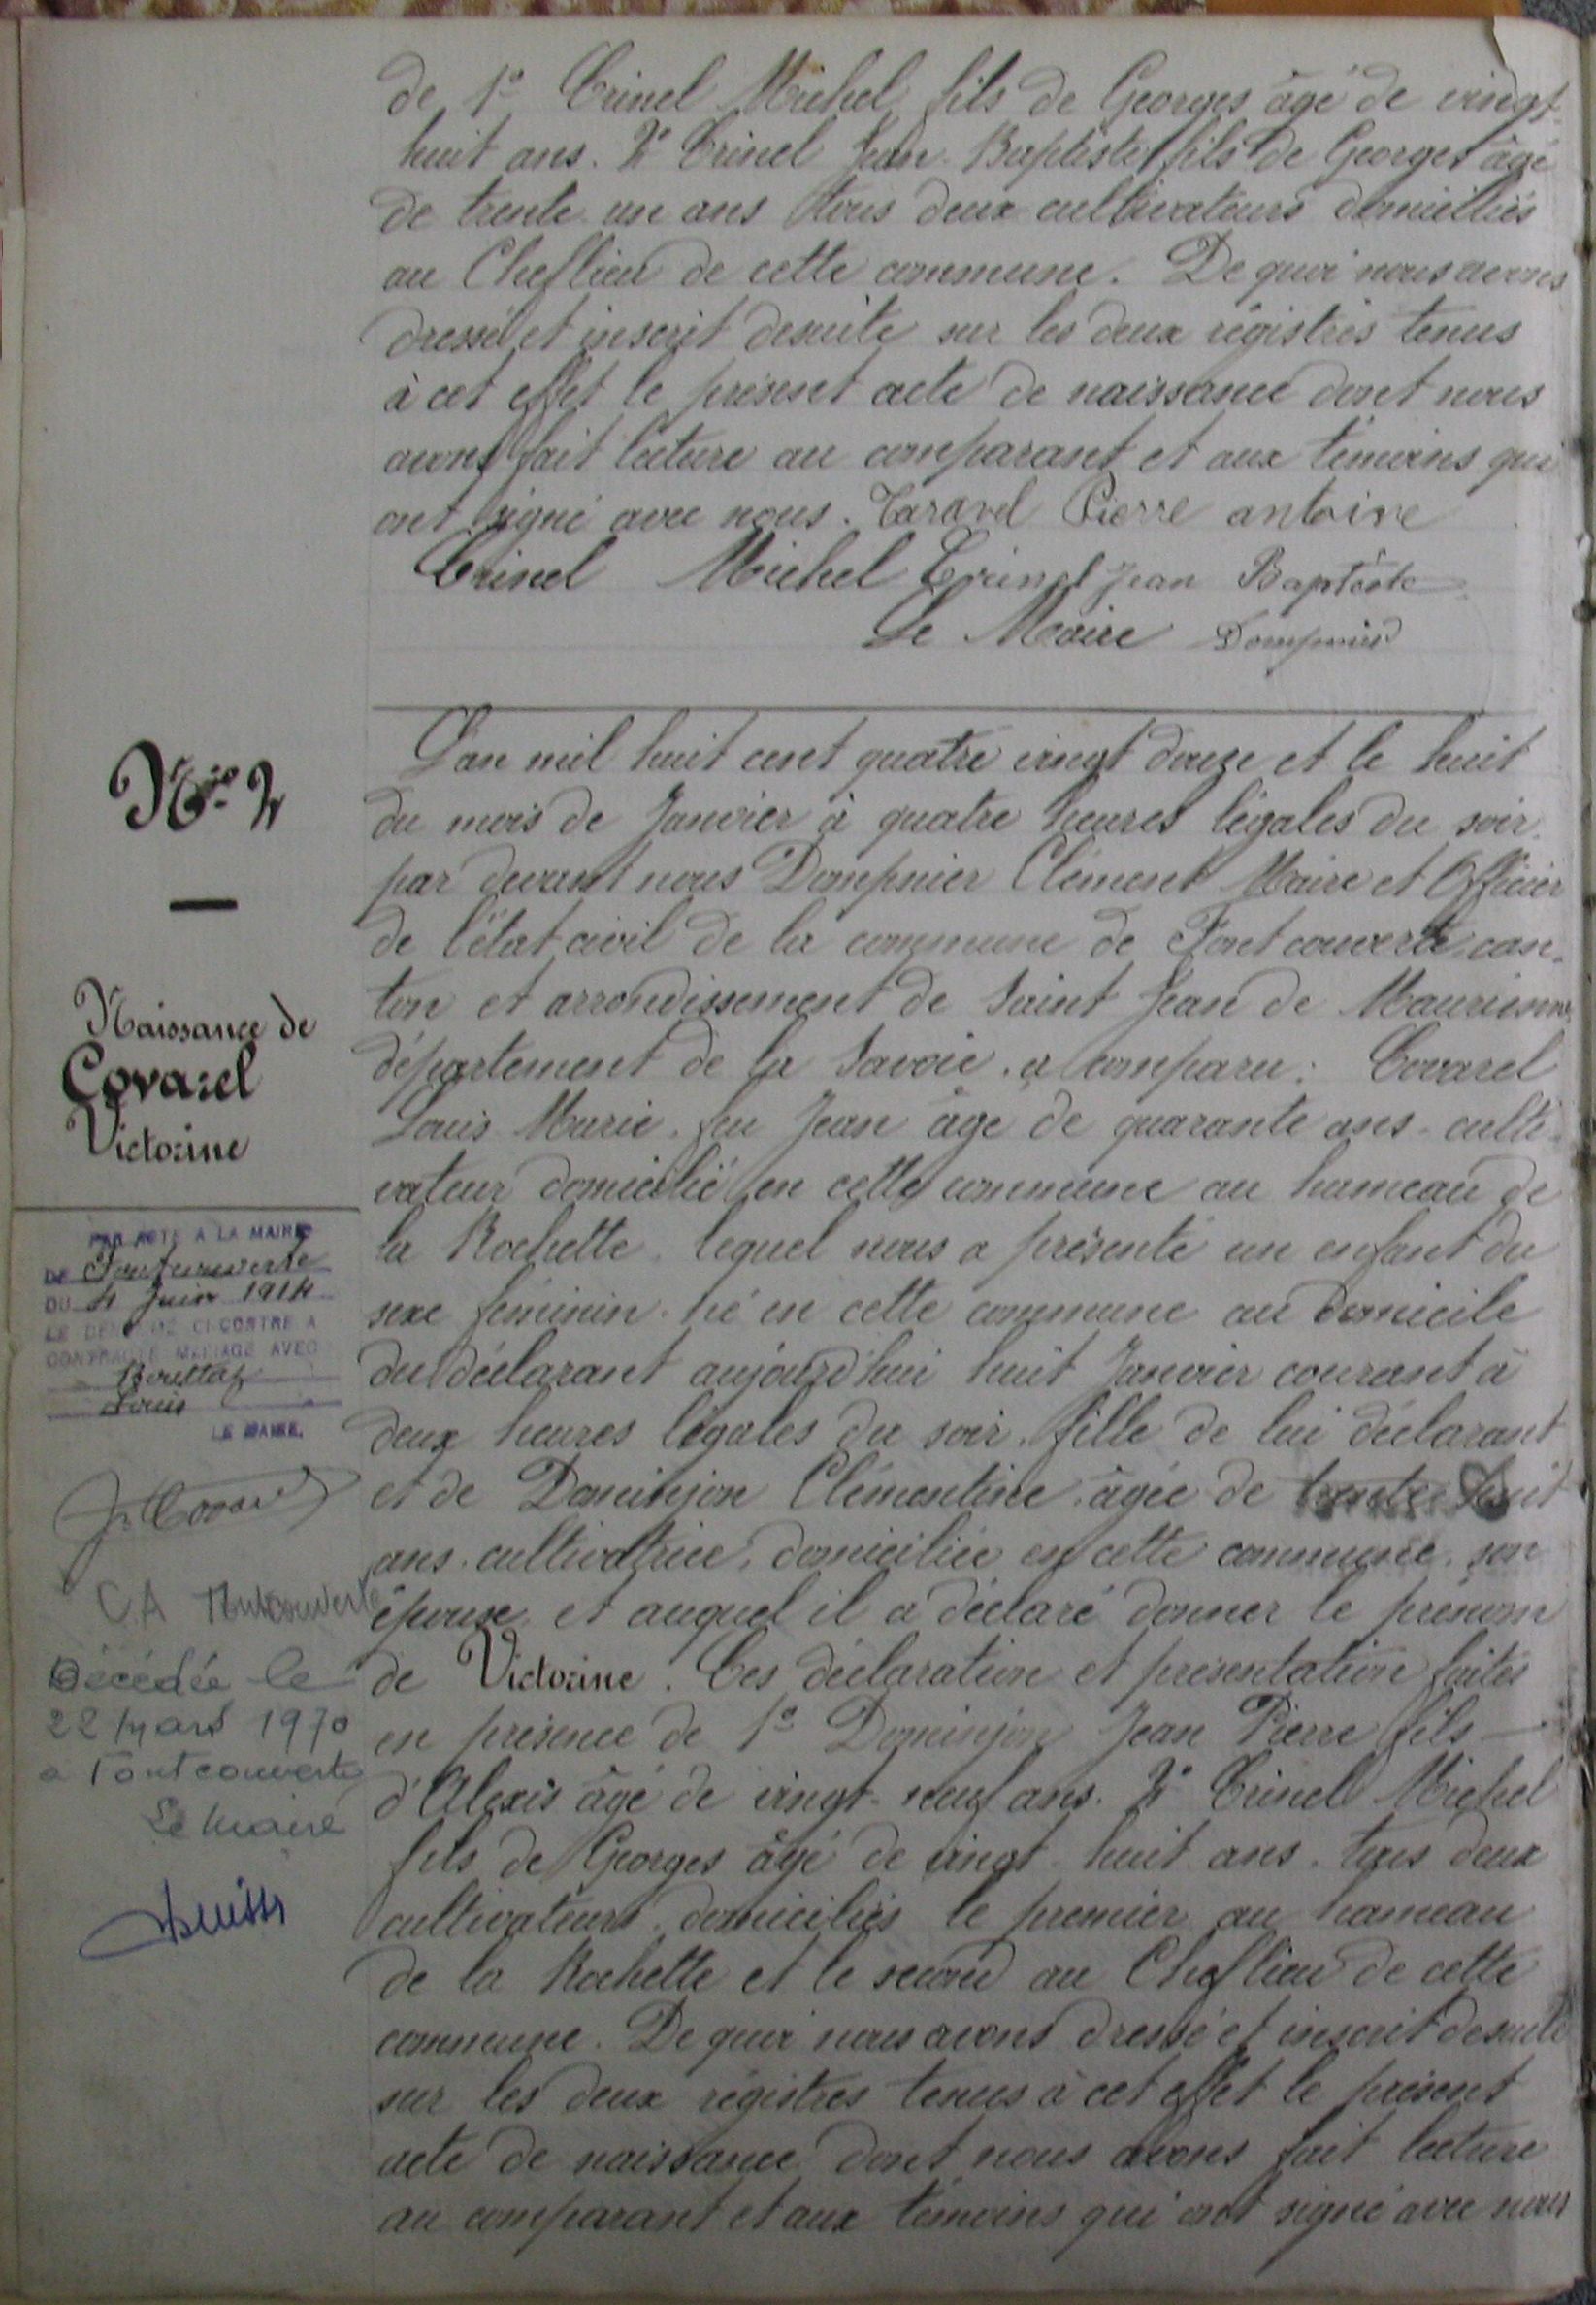 de 1° Crinel Michel fils de Georges âgé de vingt
huit ans. 2° Crinel Jean Baptiste fils de Georges âgé
de trente un ans tous deux cultivateurs domiciliés
au Cheflieu de cette commune. De quoi nous avons
dressé et inscrit desuite sur les deux régistres tenus
à cet effet le présent acte de naissance dont nous
avons fait lecture au comparant et aux témoins qui
ont signé avec nous. Taravel Pierre antoine
Crinel Michel Crinel Jean Baptiste
Le Maire Dompnier
N° 2
Naissance de
Covarel
Victorine
L'an mil huit cent quatre vingt douze et le huit
du mois de Janvier à quatre heures légales du soir
par devant nous Dompnier Clément Maire et Officier
de l'état civil de la commune de Fontcouverte can-
ton et arrondissement de Saint Jean de Maurienne
département de la Savoie. a comparu: Covarel
Louis Marie. feu Jean âgé de quarante ans. culti-
vateur domicilié en cette commune au hameau de
la Rochette. lequel nous a présenté un enfant du
sexe féminin. né en cette commune au domicile
du déclarant aujourd'hui huit Janvier courant à
deux heures légales du soir. fille de lui déclarant
et de Dominjon Clémentine. âgée de trente huit
ans. cultivatrice, domiciliée en cette commune. son
épouse. et auquel il a déclaré donner le prénom
de Victorine. Ces déclaration et présentation faites
en présence de 1° Dominjon Jean Pierre fils
d'Alexis âgé de vingt-neuf ans. 2° Crinel Michel
fils de Georges âgé de vingt-huit ans. tous deux
cultivateurs domiciliés le premier au hameau
de la Rochette et le second au Cheflieu de cette
commune. De quoi nous avons dressé et inscrit desuite
sur les deux régistres tenus à cet effet le présent
acte de naissance dont nous avons fait lecture
au comparant et aux témoins qui ont signé avec nous
PAR ACTE A LA MAIRIE
DE Fontcouverte
DU 4 Juin 1914
LE DENOMMÉ CI-CONTRE A
CONTRACTÉ MARIAGE AVEC
Louis
LE MAIRE.
CA Fontcouverte
Décédée le
22 Mars 1970
a Fontcouverte
Le Maire